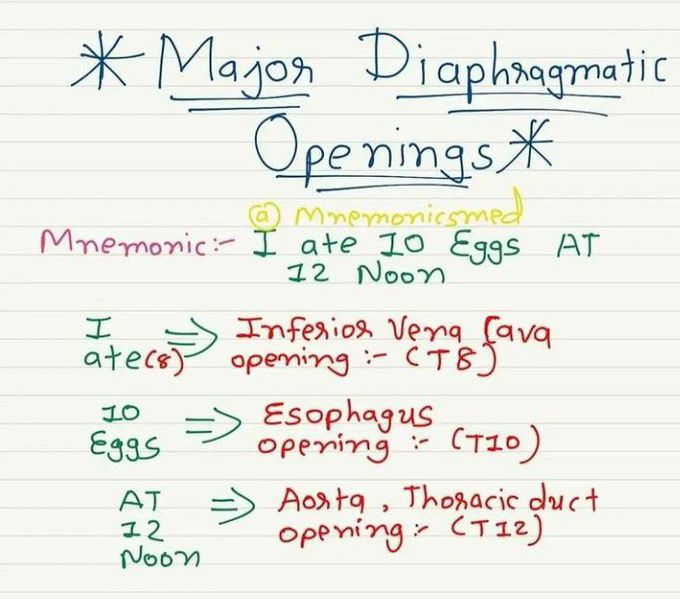 * Major Diaphragmatic
Openings *
@ Mnemonicsmed
Mnemonic:- I ate 10 Eggs AT
12 Noon
I ⇒ Inferior Vena Cava
ate(8) opening :- (T8)
10 ⇒ Esophagus
Eggs opening :- (T10)
AT ⇒ Aorta, Thoracic duct
12 opening:- (T12)
Noon